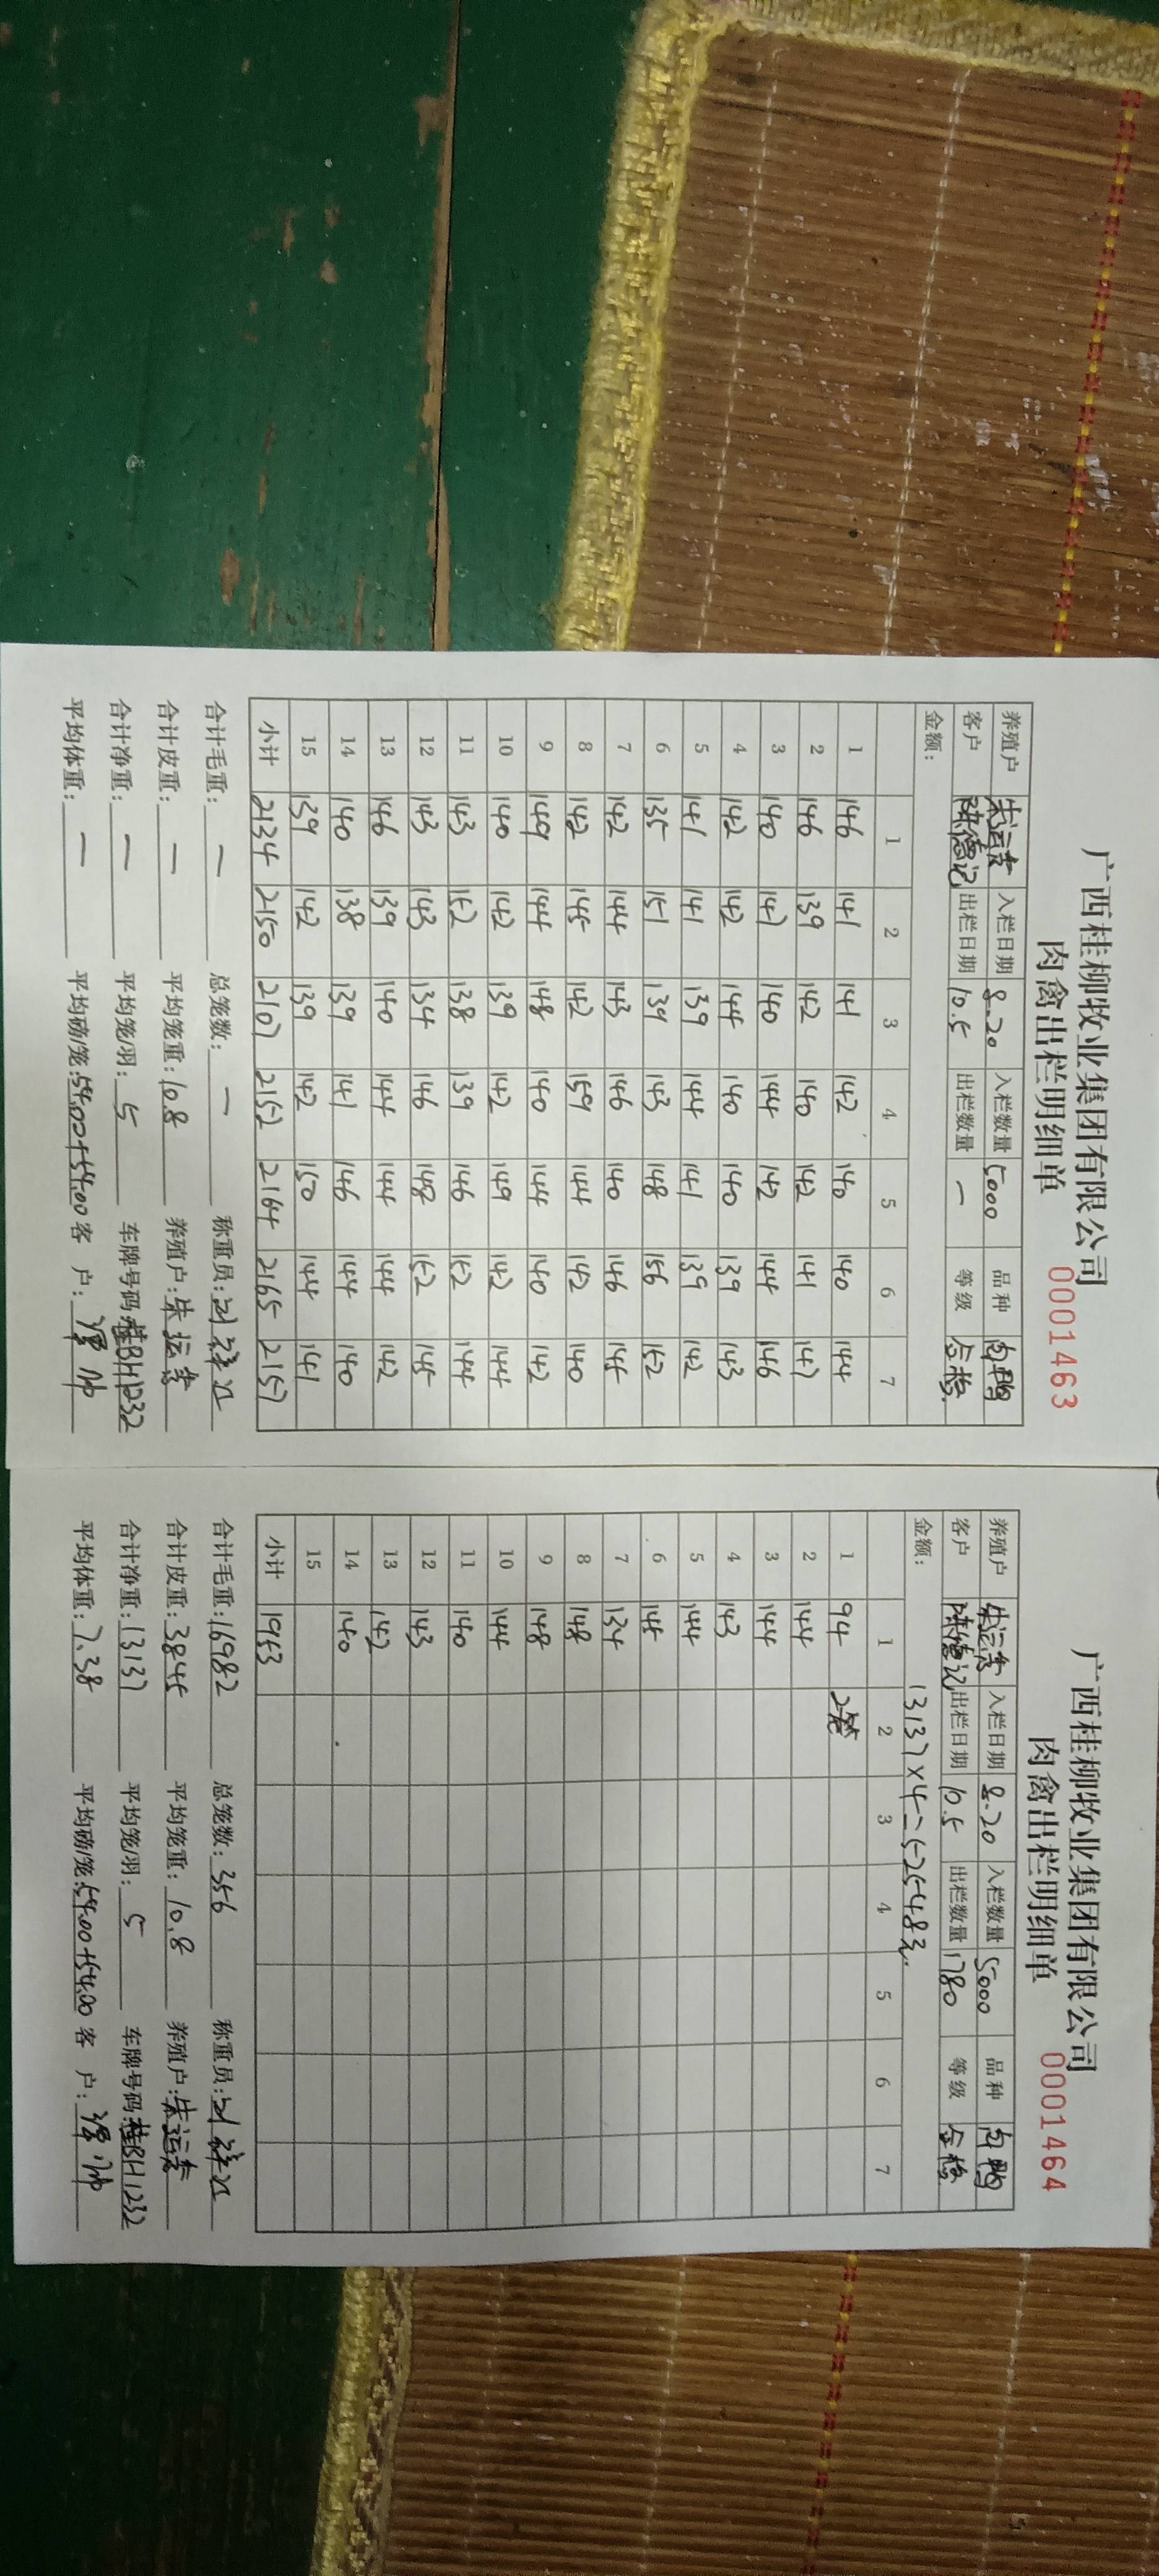 广西桂柳牧业集团有限公司
肉禽出栏明细单 0001463
养殖户 朱运芳 入栏日期 8.20 入栏数量 5000 品种 白鸭
客户 陈德记 出栏日期 10.5 出栏数量 一 等级 合格
金额:
1 2 3 4 5 6 7
1 146 141 141 142 140 140 144
2 146 139 142 140 142 141 147
3 140 147 140 144 142 144 146
4 142 142 144 140 140 139 143
5 141 141 139 144 141 139 142
6 135 151 139 143 148 156 152
7 142 144 143 146 140 146 145
8 142 145 142 159 144 142 140
9 149 144 148 140 144 140 142
10 140 142 139 142 149 142 144
11 143 152 138 139 146 152 144
12 143 143 134 146 148 152 145
13 146 139 140 144 144 144 142
14 140 138 139 141 146 144 140
15 139 142 139 142 150 144 141
小计 2134 2150 2107 2152 2164 2165 2157
合计毛重: 一 总笼数: 一 称重员:
合计皮重: 一 平均笼重: 10.8 养殖户: 朱运芳
合计净重: 一 平均笼/羽: 5 车牌号码: 桂BH1232
平均体重: 一 平均磅/笼: 54.00+54.00 客 户:
广西桂柳牧业集团有限公司
肉禽出栏明细单 0001464
养殖户 朱运芳 入栏日期 8.20 入栏数量 5000 品种 白鸭
客户 陈德记 出栏日期 10.5 出栏数量 1780 等级 合格
金额: 13137×4=52548元
1 2 3 4 5 6 7
1 94 2笼
2 144
3 144
4 143
5 144
6 145
7 134
8 148
9 148
10 144
11 140
12 143
13 142
14 140
15
小计 1953
合计毛重: 16982 总笼数: 356 称重员:
合计皮重: 3845 平均笼重: 10.8 养殖户: 朱运芳
合计净重: 13137 平均笼/羽: 5 车牌号码: 桂BH1232
平均体重: 7.38 平均磅/笼: 54.00+54.00 客 户: